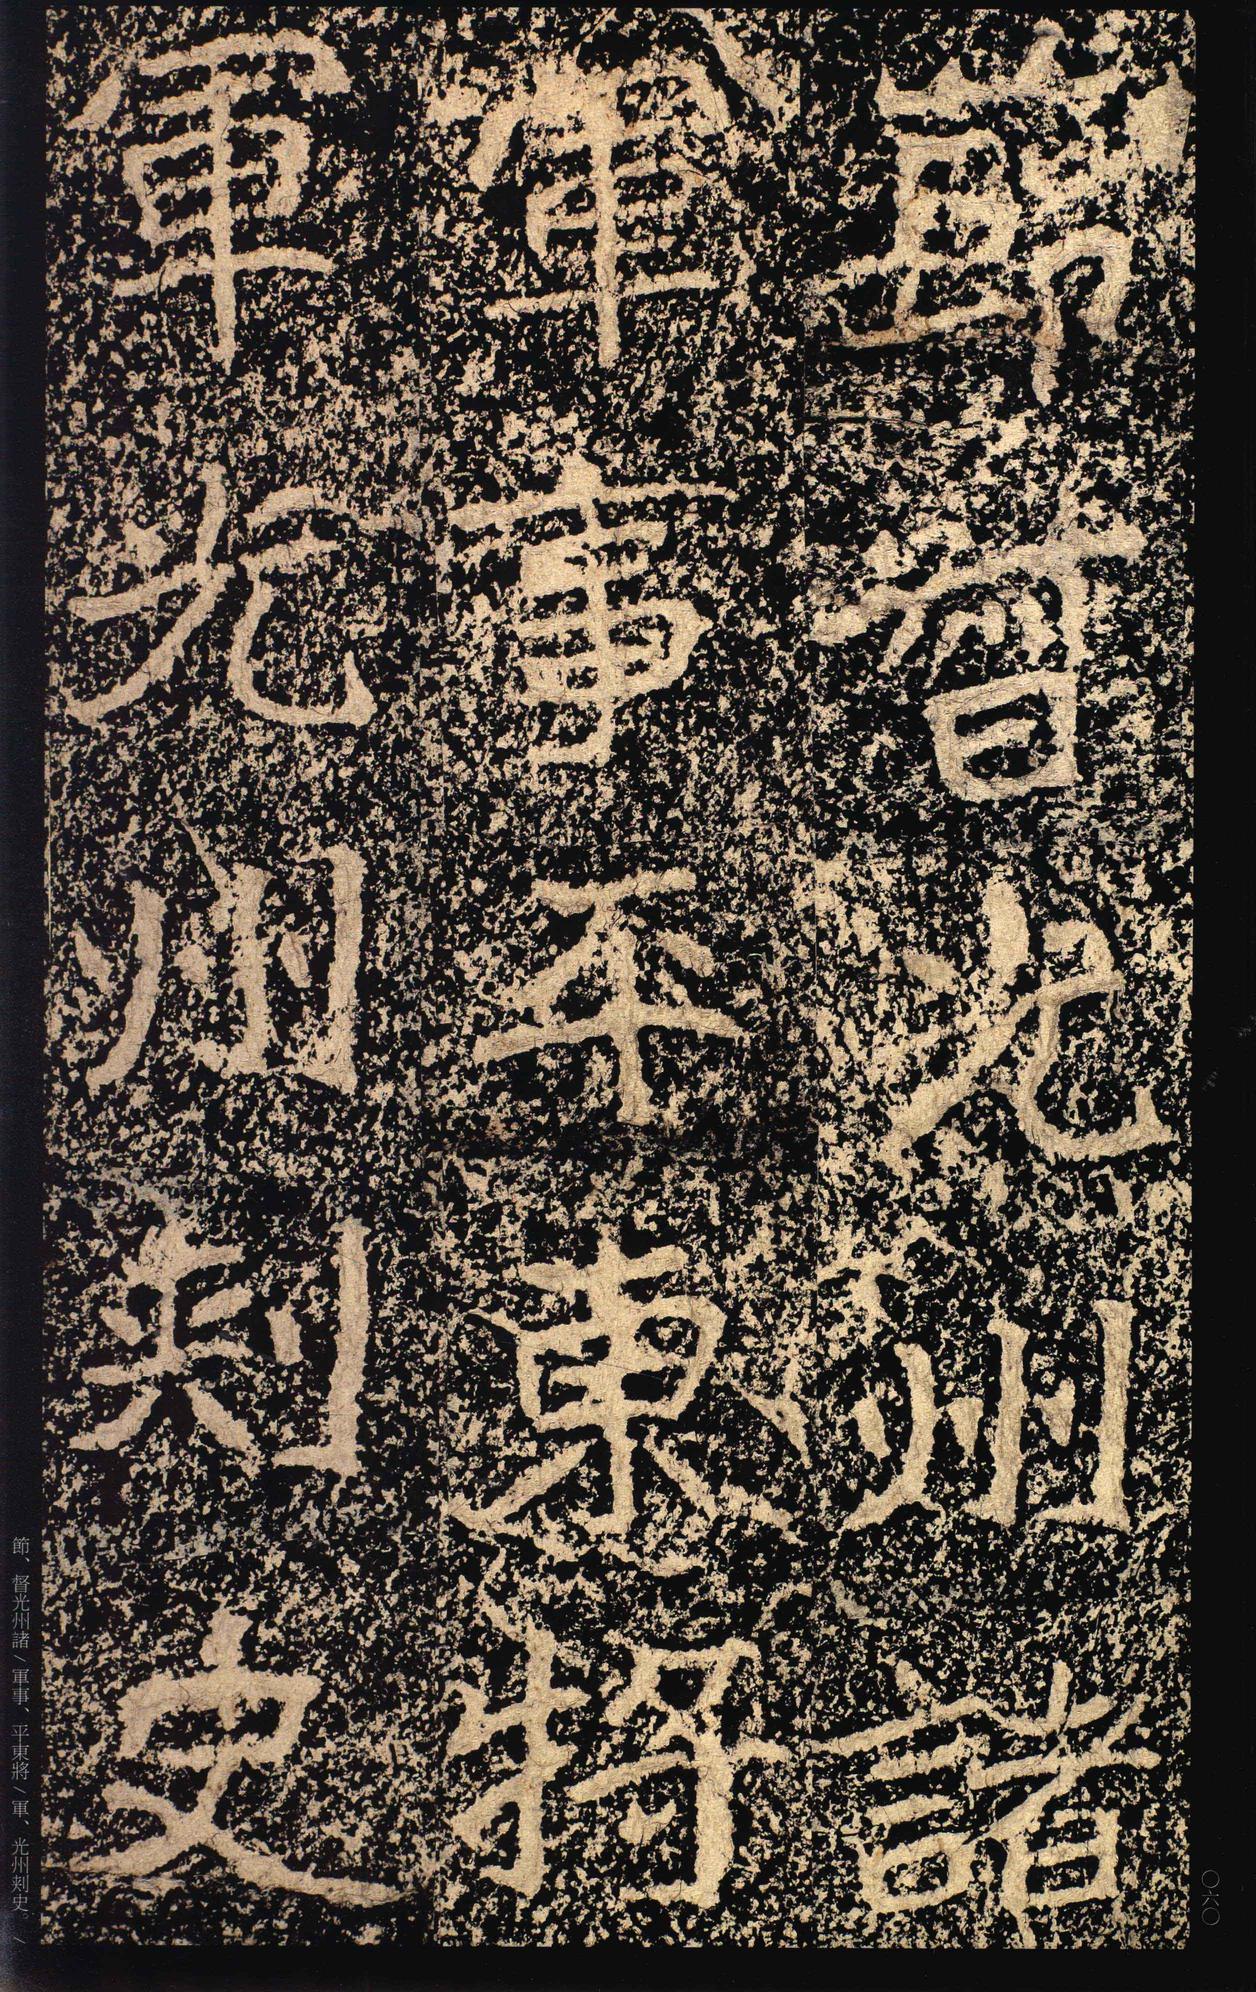 節督光州諸
軍事平東將
軍光州刾史
節、督光州諸/軍事、平東將/軍、光州刾史。/
〇六〇